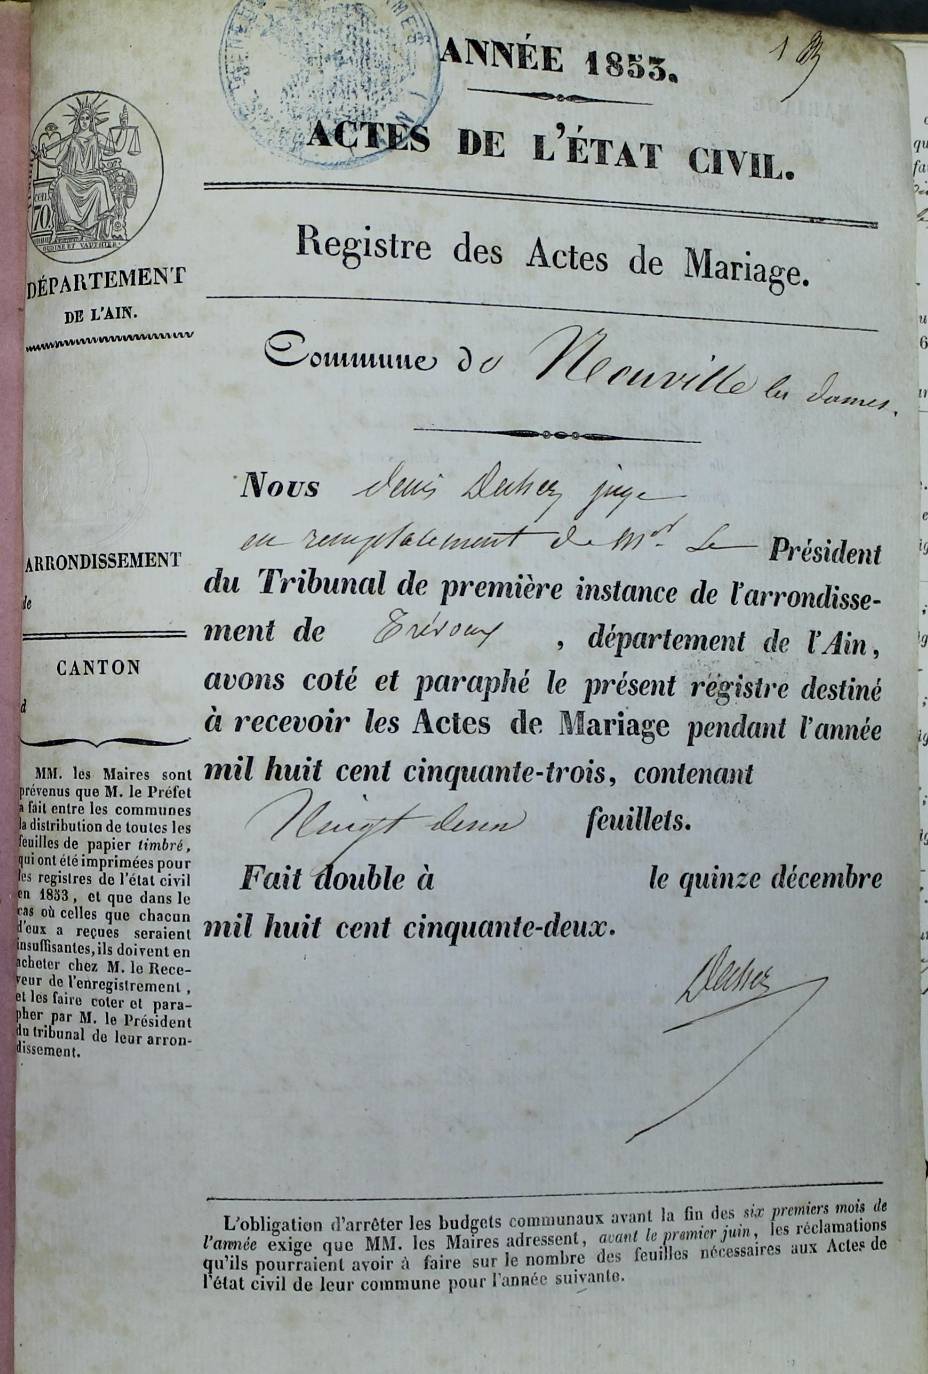 ANNÉE 1853.
ACTES DE L'ÉTAT CIVIL.
Registre des Actes de Mariage.
Commune de Neuville les Dames.
Nous Denis Ducher juge
en remplacement de Mr. Le Président
du Tribunal de première instance de l'arrondisse-
ment de Trévoux, département de l'Ain,
avons coté et paraphé le présent régistre destiné
à recevoir les Actes de Mariage pendant l'année
mil huit cent cinquante-trois, contenant
Vingt deux feuillets.
Fait double à le quinze décembre
mil huit cent cinquante-deux.
70
OUDINÉ ET VAUTHIER
DÉPARTEMENT
DE L'AIN.
ARRONDISSEMENT
de
CANTON
d
MM. les Maires sont
prévenus que M. le Préfet
a fait entre les communes
la distribution de toutes les
feuilles de papier timbré,
qui ont été imprimées pour
les registres de l'état civil
en 1853, et que dans le
cas où celles que chacun
d'eux a reçues seraient
insuffisantes, ils doivent en
acheter chez M. le Rece-
veur de l'enregistrement,
et les faire coter et para-
pher par M. le Président
du tribunal de leur arron-
dissement.
L'obligation d'arrêter les budgets communaux avant la fin des six premiers mois de
l'année exige que MM. les Maires adressent, avant le premier juin, les réclamations
qu'ils pourraient avoir à faire sur le nombre des feuilles nécessaires aux Actes de
l'état civil de leur commune pour l'année suivante.